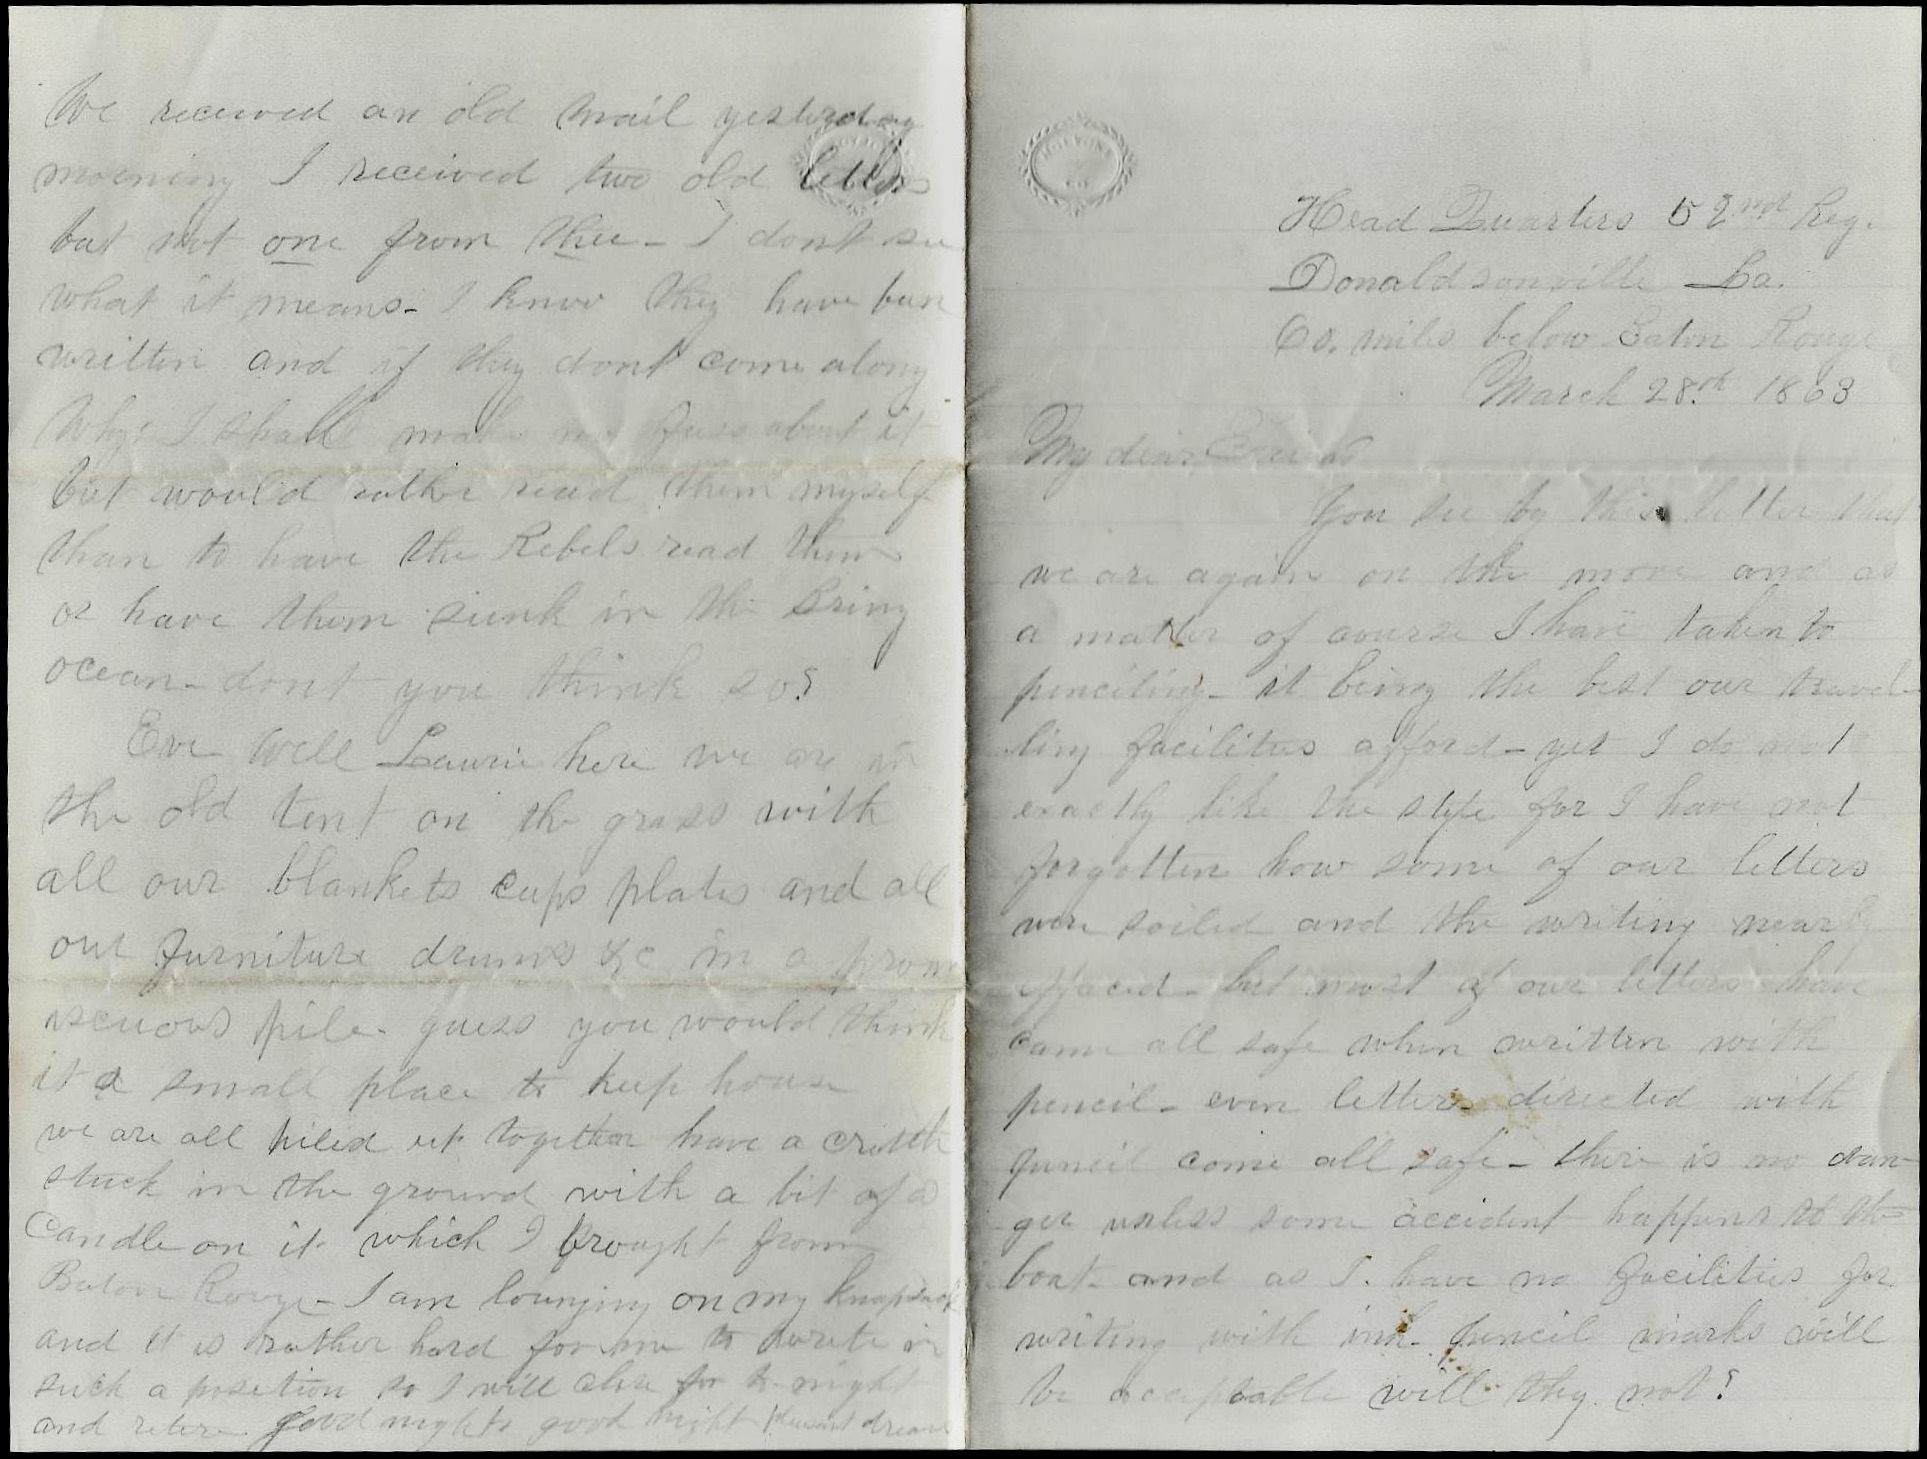 HOLYOKE
CO
Head Quarters 52nd Reg.
Donaldsonville La.
60. miles below Baton Rouge
March 28th 1863
My dear Friend
You see by this letter that
we are again on the move and as
a matter of course I have taken to
penciling - it being the best our travel-
ling facilities afford - yet I do not
exactly like the style for I have not
forgotten how some of our letters
were soiled and the writing nearly
effaced - but most of our letters have
came all safe when written with
pencil - even letters directed with
pencil come all safe - there is no dan-
ger unless some accident happens to the
boat - and as I have no facilities for
writing with ink - pencil marks will
be acceptable will they not?
We received an old mail yesterday
morning I received two old letters
but not one from thee - I dont see
what it means - I know they have been
written and if they dont come along
Why! I shall make no fuss about it
but would rather read them myself
than to have the Rebels read them
or have them sunk in the briny
ocean - dont you think so?
Eve Well Laurie here we are in
the old tent on the grass with
all our blankets cups plates and all
our furniture drums &c in a prom
iscuous pile - guess you would think
it a small place to keep house
we are all piled up together have a crotch
stuck in the ground with a bit of a
Candle on it which I brought from
Baton Rouge - I am lounging on my knapsack
and it is rather hard for me to write in
such a position so I will close for to-night
and retire good night good night pleasant dreams